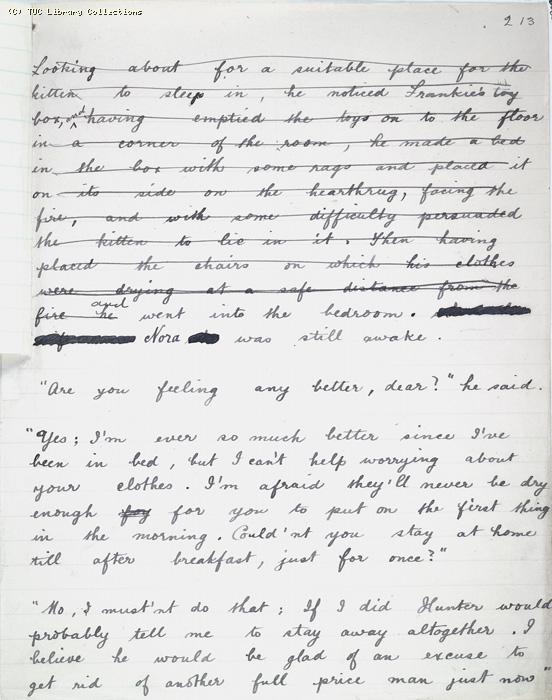 (C) TUC Library Collections
213
Looking about for a suitable place for the
kitten to sleep in, he noticed Frankie's toy
box, and having emptied the toys on to the floor
in a corner of the room, he made a bed
in the box with some rags and placed it
on its side on the hearthrug, facing the
fire, and with some difficulty persuaded
the kitten to lie in it. Then having
placed the chairs on which his clothes
were drying at a safe distance from the
fire he and went into the bedroom.
Nora was still awake.
"Are you feeling any better, dear?" he said.
"Yes; I'm ever so much better since I've
been in bed, but I can't help worrying about
your clothes. I'm afraid they'll never be dry
enough for you to put on the first thing
in the morning. Could'nt you stay at home
till after breakfast, just for once?"
"No, I must'nt do that; If I did Hunter would
probably tell me to stay away altogether. I
believe he would be glad of an excuse to
get rid of another full price man just now"